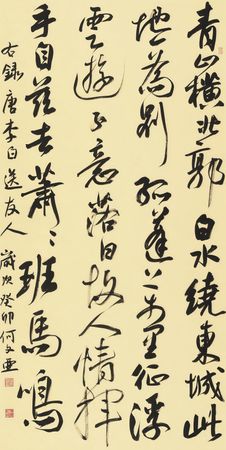 青山橫北郭白水繞東城此
地為別孤蓬万里征浮
雲遊子意落日故人情揮
手自茲去蕭〻班馬鳴
右錄唐李白送友人 歲次癸卯何文